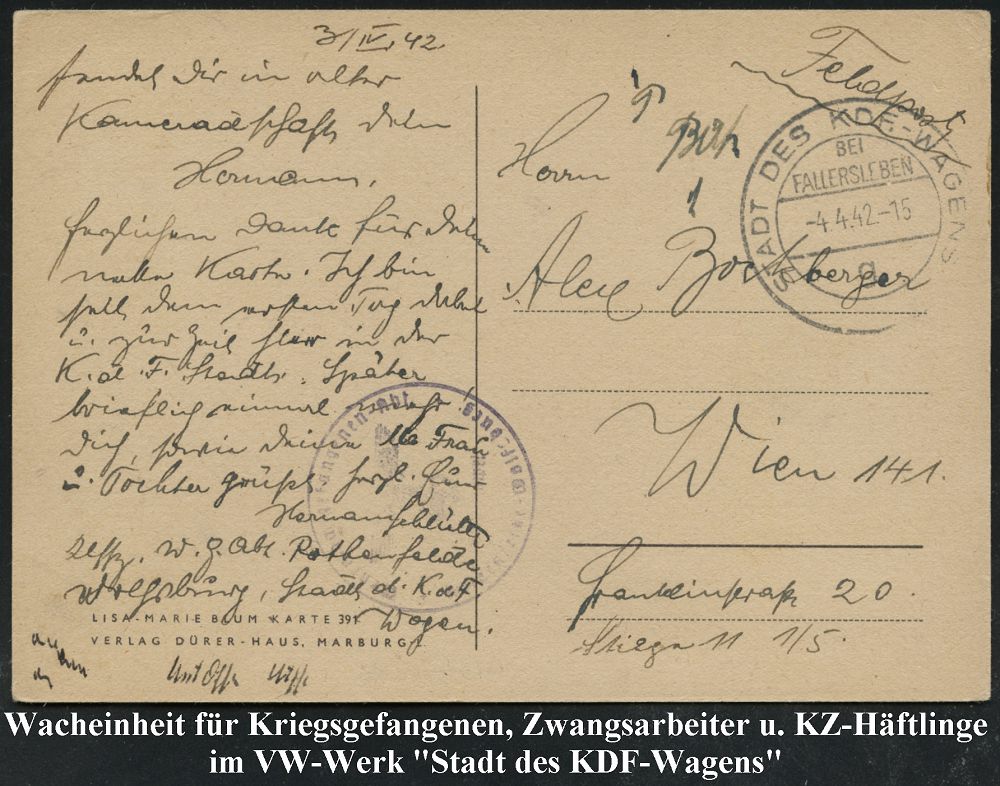 3/IV. 42.
sendet Dir in alter
Kameradschaft dein
Hermann.
Herzlichen Dank für deine
nette Karte. Ich bin
seit dem ersten Tag dabei
u. zur Zeit hier in der
K.d.F. Stadt. Später
brieflich einmal mehr
Dich, sowie deine Frau
u. Tochter grüßt herzl. Euer
Hermann Schlüter
W. Z. Abt. Rothenfelde
Wolfsburg, Stadt d. K.d.F.
Wagen.
LISA-MARIE BLUM KARTE 391
VERLAG DÜRER-HAUS, MARBURG
Feldpost
STADT DES KDF.-WAGENS
BEI
FALLERSLEBEN
-4.4.42.-15
a
Herrn
Alex Bocksberger
Wien 141.
Franklinstraße 20.
Stiege 11 1/5.
Wacheinheit für Kriegsgefangenen, Zwangsarbeiter u. KZ-Häftlinge
im VW-Werk "Stadt des KDF-Wagens"